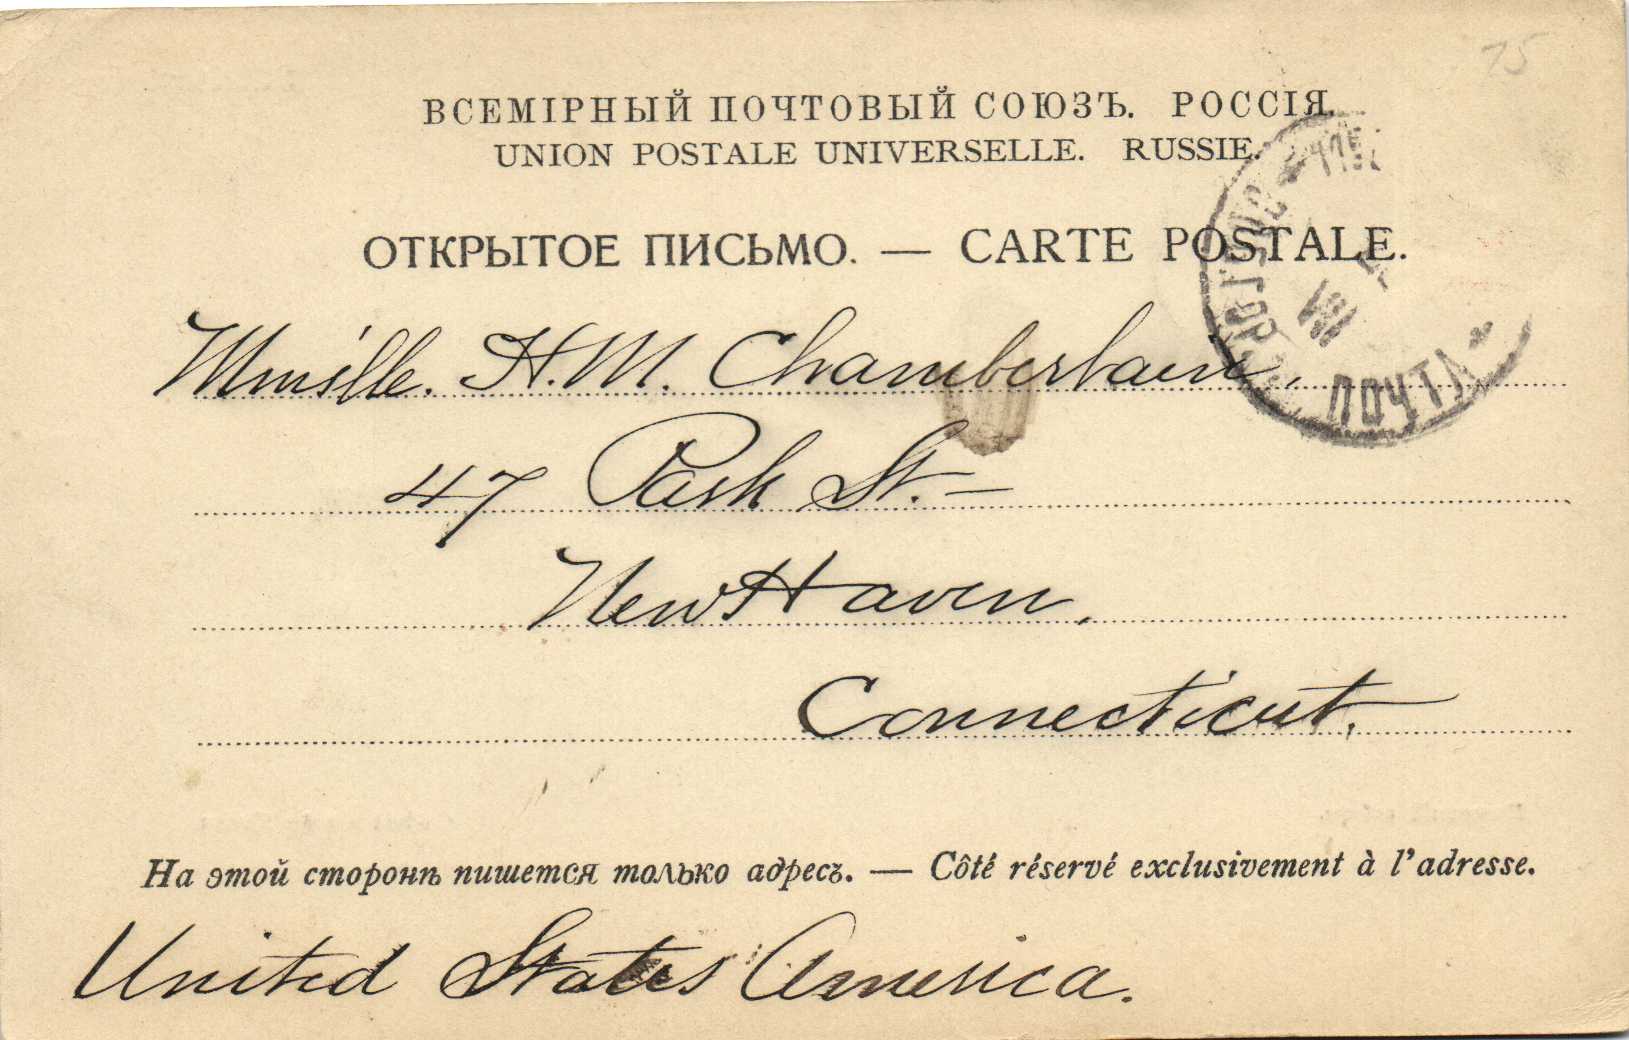 15
ВСЕМІРНЫЙ ПОЧТОВЫЙ СОЮЗЪ. РОССІЯ.
UNION POSTALE UNIVERSELLE. RUSSIE.
ОТКРЫТОЕ ПИСЬМО. — CARTE POSTALE.
H. M. Chamberlain,
47 Park St. —
New Haven,
Connecticut.
На этой сторонѣ пишется только адресъ. — Côté réservé exclusivement à l'adresse.
United States America.
VIII
ПОЧТА